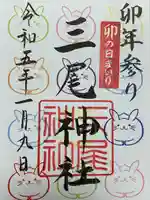 卯年参り
卯の日まいり
三尾神社
令和五年一月九日